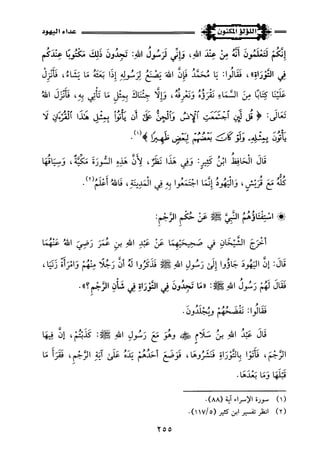 عداء اليهود
اللؤلؤ المكنون
إِنَّكُمْ لَتَعْلَمُونَ أَنَّهُ مِنْ عِنْدِ اللهِ، وَإِنِّي لَرَسُولُ اللهِ: تَجِدُونَ ذَلِكَ مَكْتُوبًا عِنْدَكُمْ
فِي التَّوْرَاةِ»، فَقَالُوا: يَا مُحَمَّدُ فَإِنَّ اللهَ يَصْنَعُ لِرَسُولِهِ إِذَا بَعَثَهُ مَا يَشَاءُ، فَأَنْزِلْ
عَلَيْنَا كِتَابًا مِنَ السَّمَاءِ نَقْرَؤُهُ وَنَعْرِفُهُ، وَإِلَّا جِئْنَاكَ بِمِثْلِ مَا تَأْتِي بِهِ، فَأَنْزَلَ اللهُ
تَعَالَى: ﴿ قُل لَّئِنِ ٱجْتَمَعَتِ ٱلْإِنسُ وَٱلْجِنُّ عَلَىٰٓ أَن يَأْتُوا۟ بِمِثْلِ هَٰذَا ٱلْقُرْءَانِ لَا
يَأْتُونَ بِمِثْلِهِۦ وَلَوْ كَانَ بَعْضُهُمْ لِبَعْضٍ ظَهِيرًا ﴾(١).
قَالَ الْحَافِظُ ابْنُ كَثِيرٍ: وَفِي هَذَا نَظَرٌ، لِأَنَّ هَذِهِ السُّورَةَ مَكِّيَّةٌ، وَسِيَاقُهَا
كُلُّهُ مَعَ قُرَيْشٍ، وَالْيَهُودُ إِنَّمَا اجْتَمَعُوا بِهِ فِي الْمَدِينَةِ، فَاللهُ أَعْلَمُ(٢).
◉ اسْتِفْتَاؤُهُمُ النَّبِيَّ ﷺ عَنْ حُكْمِ الرَّجْمِ:
أَخْرَجَ الشَّيْخَانِ فِي صَحِيحَيْهِمَا عَنْ عَبْدِ اللهِ بنِ عُمَرَ رَضِيَ اللهُ عَنْهُمَا
قَالَ: إِنَّ الْيَهُودَ جَاؤُوا إِلَى رَسُولِ اللهِ ﷺ فَذَكَرُوا لَهُ أَنَّ رَجُلًا مِنْهُمْ وَامْرَأَةً زَنَيَا،
فَقَالَ لَهُمْ رَسُولُ اللهِ ﷺ: «مَا تَجِدُونَ فِي التَّوْرَاةِ فِي شَأْنِ الرَّجْمِ؟».
فَقَالُوا: نَفْضَحُهُمْ وَيُجْلَدُونَ.
قَالَ عَبْدُ اللهِ بنُ سَلَامٍ ﷺ وهُوَ مَعَ رَسُولِ اللهِ ﷺ: كَذَبْتُمْ، إِنَّ فِيهَا
الرَّجْمَ، فَأَتَوْا بِالتَّوْرَاةِ فَنَشَرُوهَا، فَوَضَعَ أَحَدُهُمْ يَدَهُ عَلَى آيَةِ الرَّجْمِ، فَقَرَأَ مَا
قَبْلَهَا وَمَا بَعْدَهَا.
(١) سورة الإسراء آية (٨٨).
(٢) انظر تفسير ابن كثير (١١٧/٥).
٢٥٥